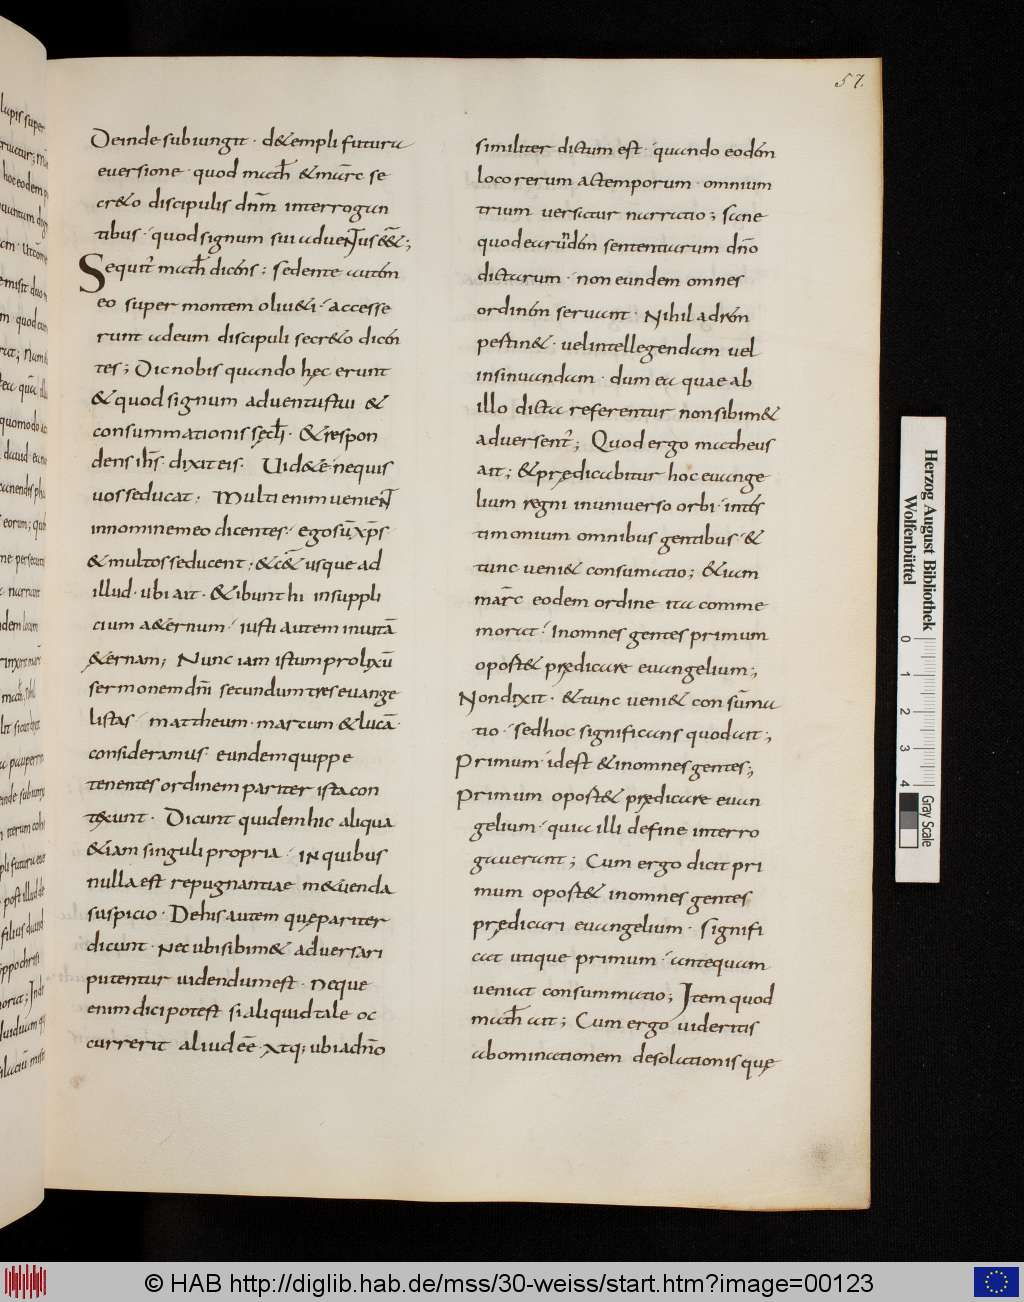 57.
Deinde subiungit · d&empli futura
euersione · quod math̄ &mar̄c se
cr&o discipulis dn̄m interrogan
tibus · quod signum sui aduentus e&̄;
Sequit᷑ math̄ dicens : sedente autem
eo super montem oliu&i · accesse
runt adeum discipuli secr&o dicen
tes ; Dic nobis quando hęc erunt
& quod signum aduentus tui &
consummationis sęcl̄i · & respon
dens ih̄s · dixit eis · Uid&e nequis
uos seducat · Multi enim uenient
innomine meo dicentes · ego sū xp̄s
& multos seducent ; &c&̄ usque ad
illud · ubi ait · & ibunt hi insuppli
cium a&ernum · iusti autem inuitā
&ernam ; Nunc iam istum prolixū
sermonem dn̄i secundum tres euange
listas · mattheum · marcum & lucā ·
consideramus · eundem quippe
tenentes ordinem pariter ista con
texunt · Dicunt quidem hic aliqua
& iam singuli propria · in quibus
nulla est repugnantiae m&uenda
suspicio · De his autem quę pariter
dicunt · Nec ubi sibim& aduersari
putentur uidendum est · Neque
enim dici potest si aliquid tale oc
currerit aliud eē · xtq; ubi adn̄o
similiter dictum est · quando eodem
loco rerum ac temporum · omnium
trium uersatur narratio ; sane
quod earundem sententiarum dn̄o
dictarum · non eundem omnes
ordinem seruant · Nihil ad rem
pestin& · uel intellegendam uel
insinuandam · dum ea quae ab
illo dicta referentur non sibim&
aduersent᷑ ; Quod ergo matheus
ait ; & prędicabitur hoc euange
lium regni inuniuerso orbi · intes
timonium omnibus gentibus · &
tunc ueni& consumatio ; & iam
mar̄c eodem ordine ita comme
morat · Inomnes gentes primum
oport& prędicare euangelium ;
Non dixit · & tunc ueni& consūma
tio · sed hoc significans quod ait ;
Primum · id est & inomnes gentes ;
Primum oport& prędicare euan
gelium · quia illi de fine interro
gauerant ; Cum ergo dicit pri
mum oport& inomnes gentes
prędicari euangelium · signifi
cat utique primum · antequam
ueniat consummatio ; Item quod
math̄ ait ; Cum ergo uideritis
abominationem desolationis quę
Herzog August Bibliothek
Wolfenbüttel
0 1 2 3 4
Gray Scale
© HAB http://diglib.hab.de/mss/30-weiss/start.htm?image=00123